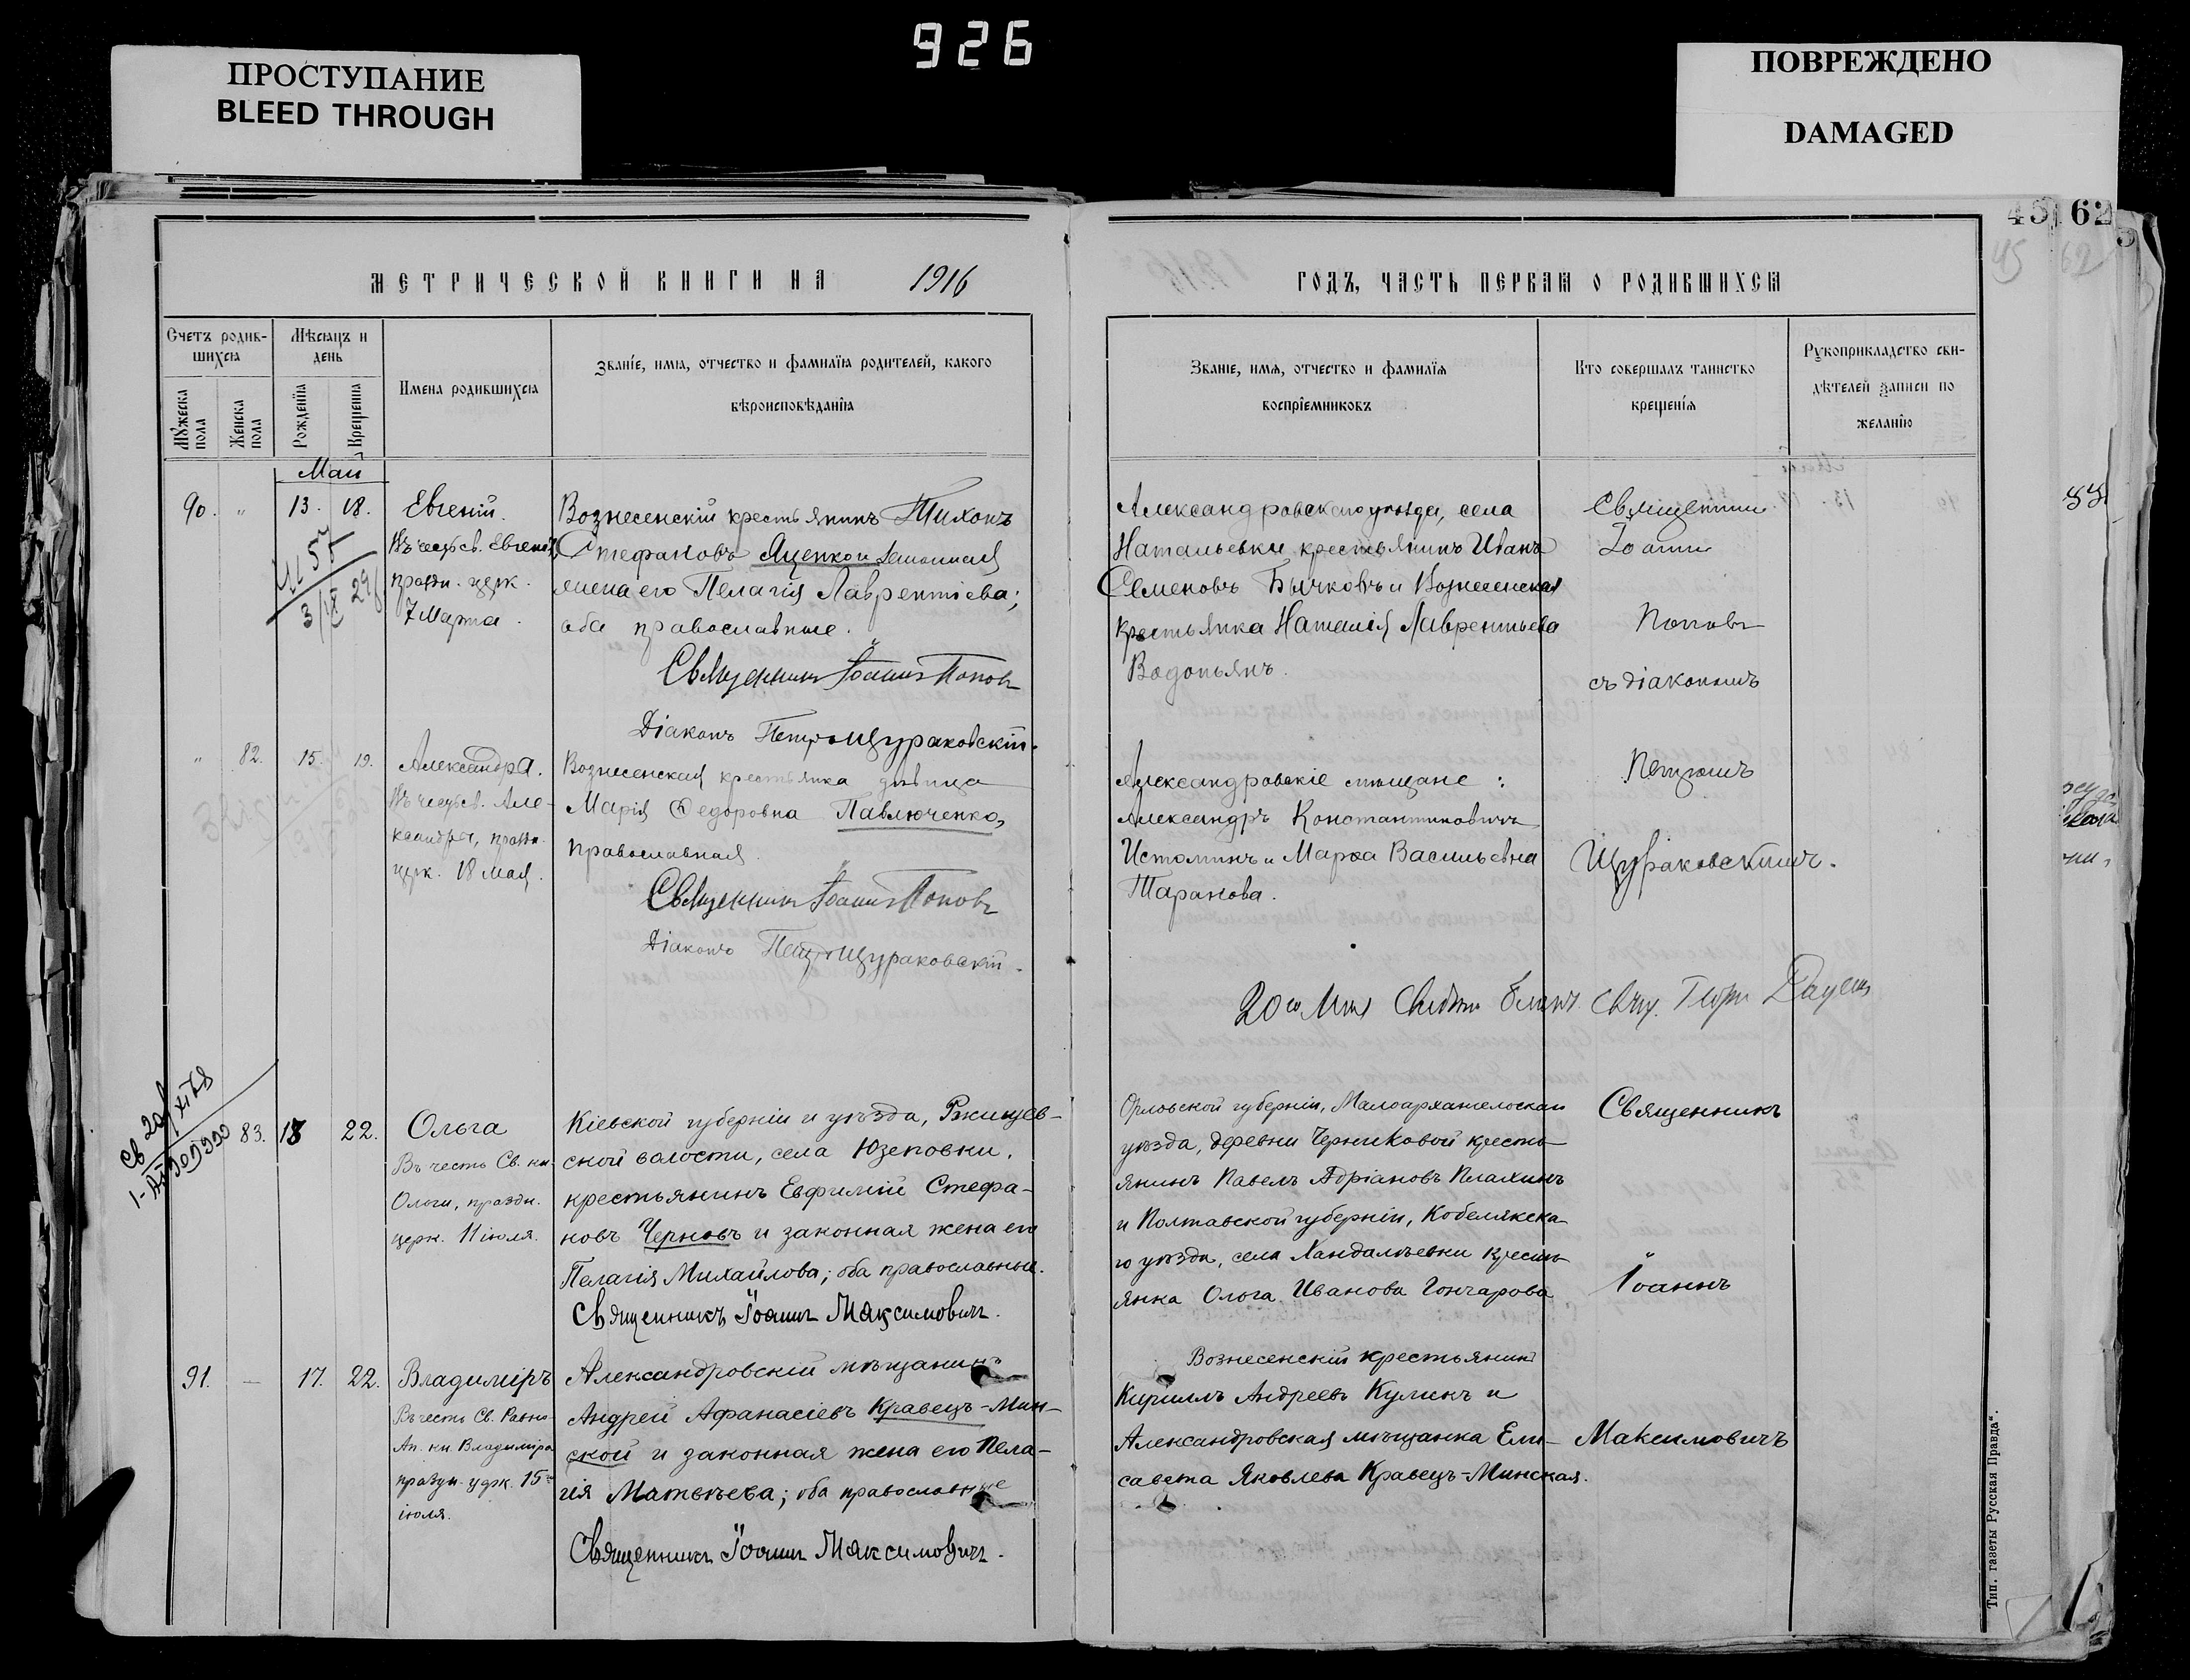 926
ПРОСТУПАНИЕ
BLEED THROUGH
ПОВРЕЖДЕНО
DAMAGED
45 62
45 62
МЕТРИЧЕСКОЙ КНИГИ НА 1916
ГОДЪ, ЧАСТЬ ПЕРВАЯ О РОДИВШИХСЯ
Счетъ родив-
шихся
Мужеска пола
Женска пола
Мѣсяцъ и
день
Рожденія
Крещенія
Имена родившихся
Званіе, имя, отчество и фамилія родителей, какого
вѣроисповѣданія
Званіе, имя, отчество и фамилія
воспріемниковъ
Кто совершалъ таинство
крещенія
Рукоприкладство сви-
дѣтелей записи по
желанію
Май
90. " 13. 18.
Евгеній.
Въ честь св. Евгенія
праздн. церк.
7 Марта.
Вознесенскій крестьянинъ Тихонъ
Стефановъ Яценко и законная
жена его Пелагія Лаврентіева;
оба православные.
Священникъ Іоаннъ Поповъ
Діаконъ Петръ Щураковскій.
Александровскаго уѣзда, села
Натальевки крестьянинъ Иванъ
Семеновъ Бычковъ и Вознесенская
крестьянка Наталія Лаврентьева
Водопьянъ.
Священникъ
Іоаннъ
Поповъ
съ діакономъ
Петромъ
Щураковскимъ.
" 82. 15. 19.
Александра.
Въ честь св. Але-
ксандры, праздн.
церк. 18 мая.
Вознесенская крестьянка дѣвица
Марія Ѳедоровна Павлюченко,
православная.
Священникъ Іоаннъ Поповъ
Діаконъ Петръ Щураковскій.
Александровскіе мѣщане:
Александръ Константиновичъ
Истоминъ и Марѳа Васильевна
Таранова.
20 го Мая
83. 18 22.
Ольга
Въ честь Св. кн.
Ольги, праздн.
церк. 11 іюля.
Кіевской губерніи и уѣзда, Ржищев-
ской волости, села Юзеповки,
крестьянинъ Евфимій Стефа-
новъ Черновъ и законная жена его
Пелагія Михайлова; оба православные.
Священникъ Іоаннъ Максимовичъ.
Орловской губерніи, Малоархангельскаго
уѣзда, деревни Черниковой кресть-
янинъ Павелъ Адріановъ Плахинъ
и Полтавской губерніи, Кобелякска-
го уѣзда, села Хандалѣевки кресть-
янка Ольга Иванова Гончарова
Священникъ
Іоаннъ
Максимовичъ
91. — 17. 22.
Владиміръ
Въ честь Св. Равно-
Ап. кн. Владиміра
праздн. церк. 15го
іюля.
Александровскій мѣщанинъ
Андрей Афанасіевъ Кравецъ-Мин-
ской и законная жена его Пела-
гія Матвѣева; оба православные
Священникъ Іоаннъ Максимовичъ.
Вознесенскій крестьянинъ
Кириллъ Андреевъ Куликъ и
Александровская мѣщанка Ели-
савета Яковлева Кравецъ-Минская.
Тип. газеты Русская Правда".